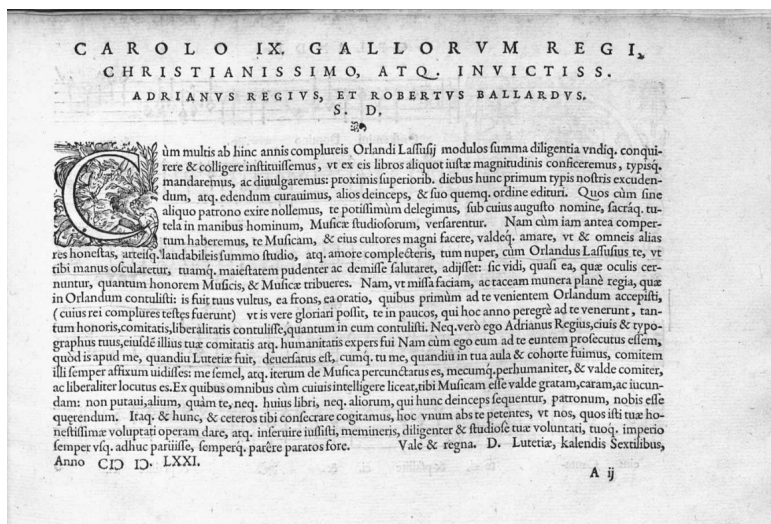 CAROLO IX. GALLORVM REGI,
CHRISTIANISSIMO, ATQ. INVICTISS.
ADRIANVS REGIVS, ET ROBERTVS BALLARDVS.
S. D.
Cùm multis ab hinc annis complureis Orlandi Lassusij modulos summa diligentia vndiq. conqui-
rere & colligere instituissemus, vt ex eis libros aliquot iustæ magnitudinis conficeremus, typisq.
mandaremus, ac diuulgaremus: proximis superiorib. diebus hunc primum typis nostris excuden-
dum, atq. edendum curauimus, alios deinceps, & suo quemq. ordine edituri. Quos cùm sine
aliquo patrono exire nollemus, te potissimùm delegimus, sub cuius augusto nomine, sacráq. tu-
tela in manibus hominum, Musicæ studiosorum, versarentur. Nam cùm iam antea comper-
tum haberemus, te Musicam, & eius cultores magni facere, valdeq. amare, vt & omneis alias
res honestas, arteisq. laudabileis summo studio, atq. amore complecteris, tum nuper, cùm Orlandus Lassusius te, vt
tibi manus oscularetur, tuamq. maiestatem pudenter ac demisse salutaret, adijsset: sic vidi, quasi ea, quæ oculis cer-
nuntur, quantum honorem Musicis, & Musicæ tribueres. Nam, vt missa faciam, ac taceam munera planè regia, quæ
in Orlandum contulisti: is fuit tuus vultus, ea frons, ea oratio, quibus primùm ad te venientem Orlandum accepisti,
(cuius rei complures testes fuerunt) vt is vere gloriari possit, te in paucos, qui hoc anno peregrè ad te venerunt, tan-
tum honoris, comitatis, liberalitatis contulisse, quantum in eum contulisti. Neq. verò ego Adrianus Regius, ciuis & typo-
graphus tuus, eiusdē illius tuæ comitatis atq. humanitatis expers fui Nam cùm ego eum ad te euntem prosecutus essem,
quòd is apud me, quandiu Lutetiæ fuit, deuersatus est, cumq. tu me, quandiu in tua aula & cohorte fuimus, comitem
illi semper affixum uidisses: me semel, atq. iterum de Musica percunctatus es, mecumq. perhumaniter, & valde comiter,
ac liberaliter locutus es. Ex quibus omnibus cùm cuiuis intelligere liceat, tibi Musicam esse valde gratam, caram, ac iucun-
dam: non putaui, alium, quàm te, neq. huius libri, neq. aliorum, qui hunc deinceps sequentur, patronum, nobis esse
querendum. Itaq. & hunc, & ceteros tibi consecrare cogitamus, hoc vnum abs te petentes, vt nos, quos isti tuæ ho-
nestissimæ voluptati operam dare, atq. inseruire iussisti, memineris, diligenter & studiose tuæ voluntati, tuoq. imperio
semper vsq. adhuc paruisse, semperq. parêre paratos fore. Vale & regna. D. Lutetiæ, kalendis Sextilibus,
Anno CIↃ IↃ. LXXI.
A ij